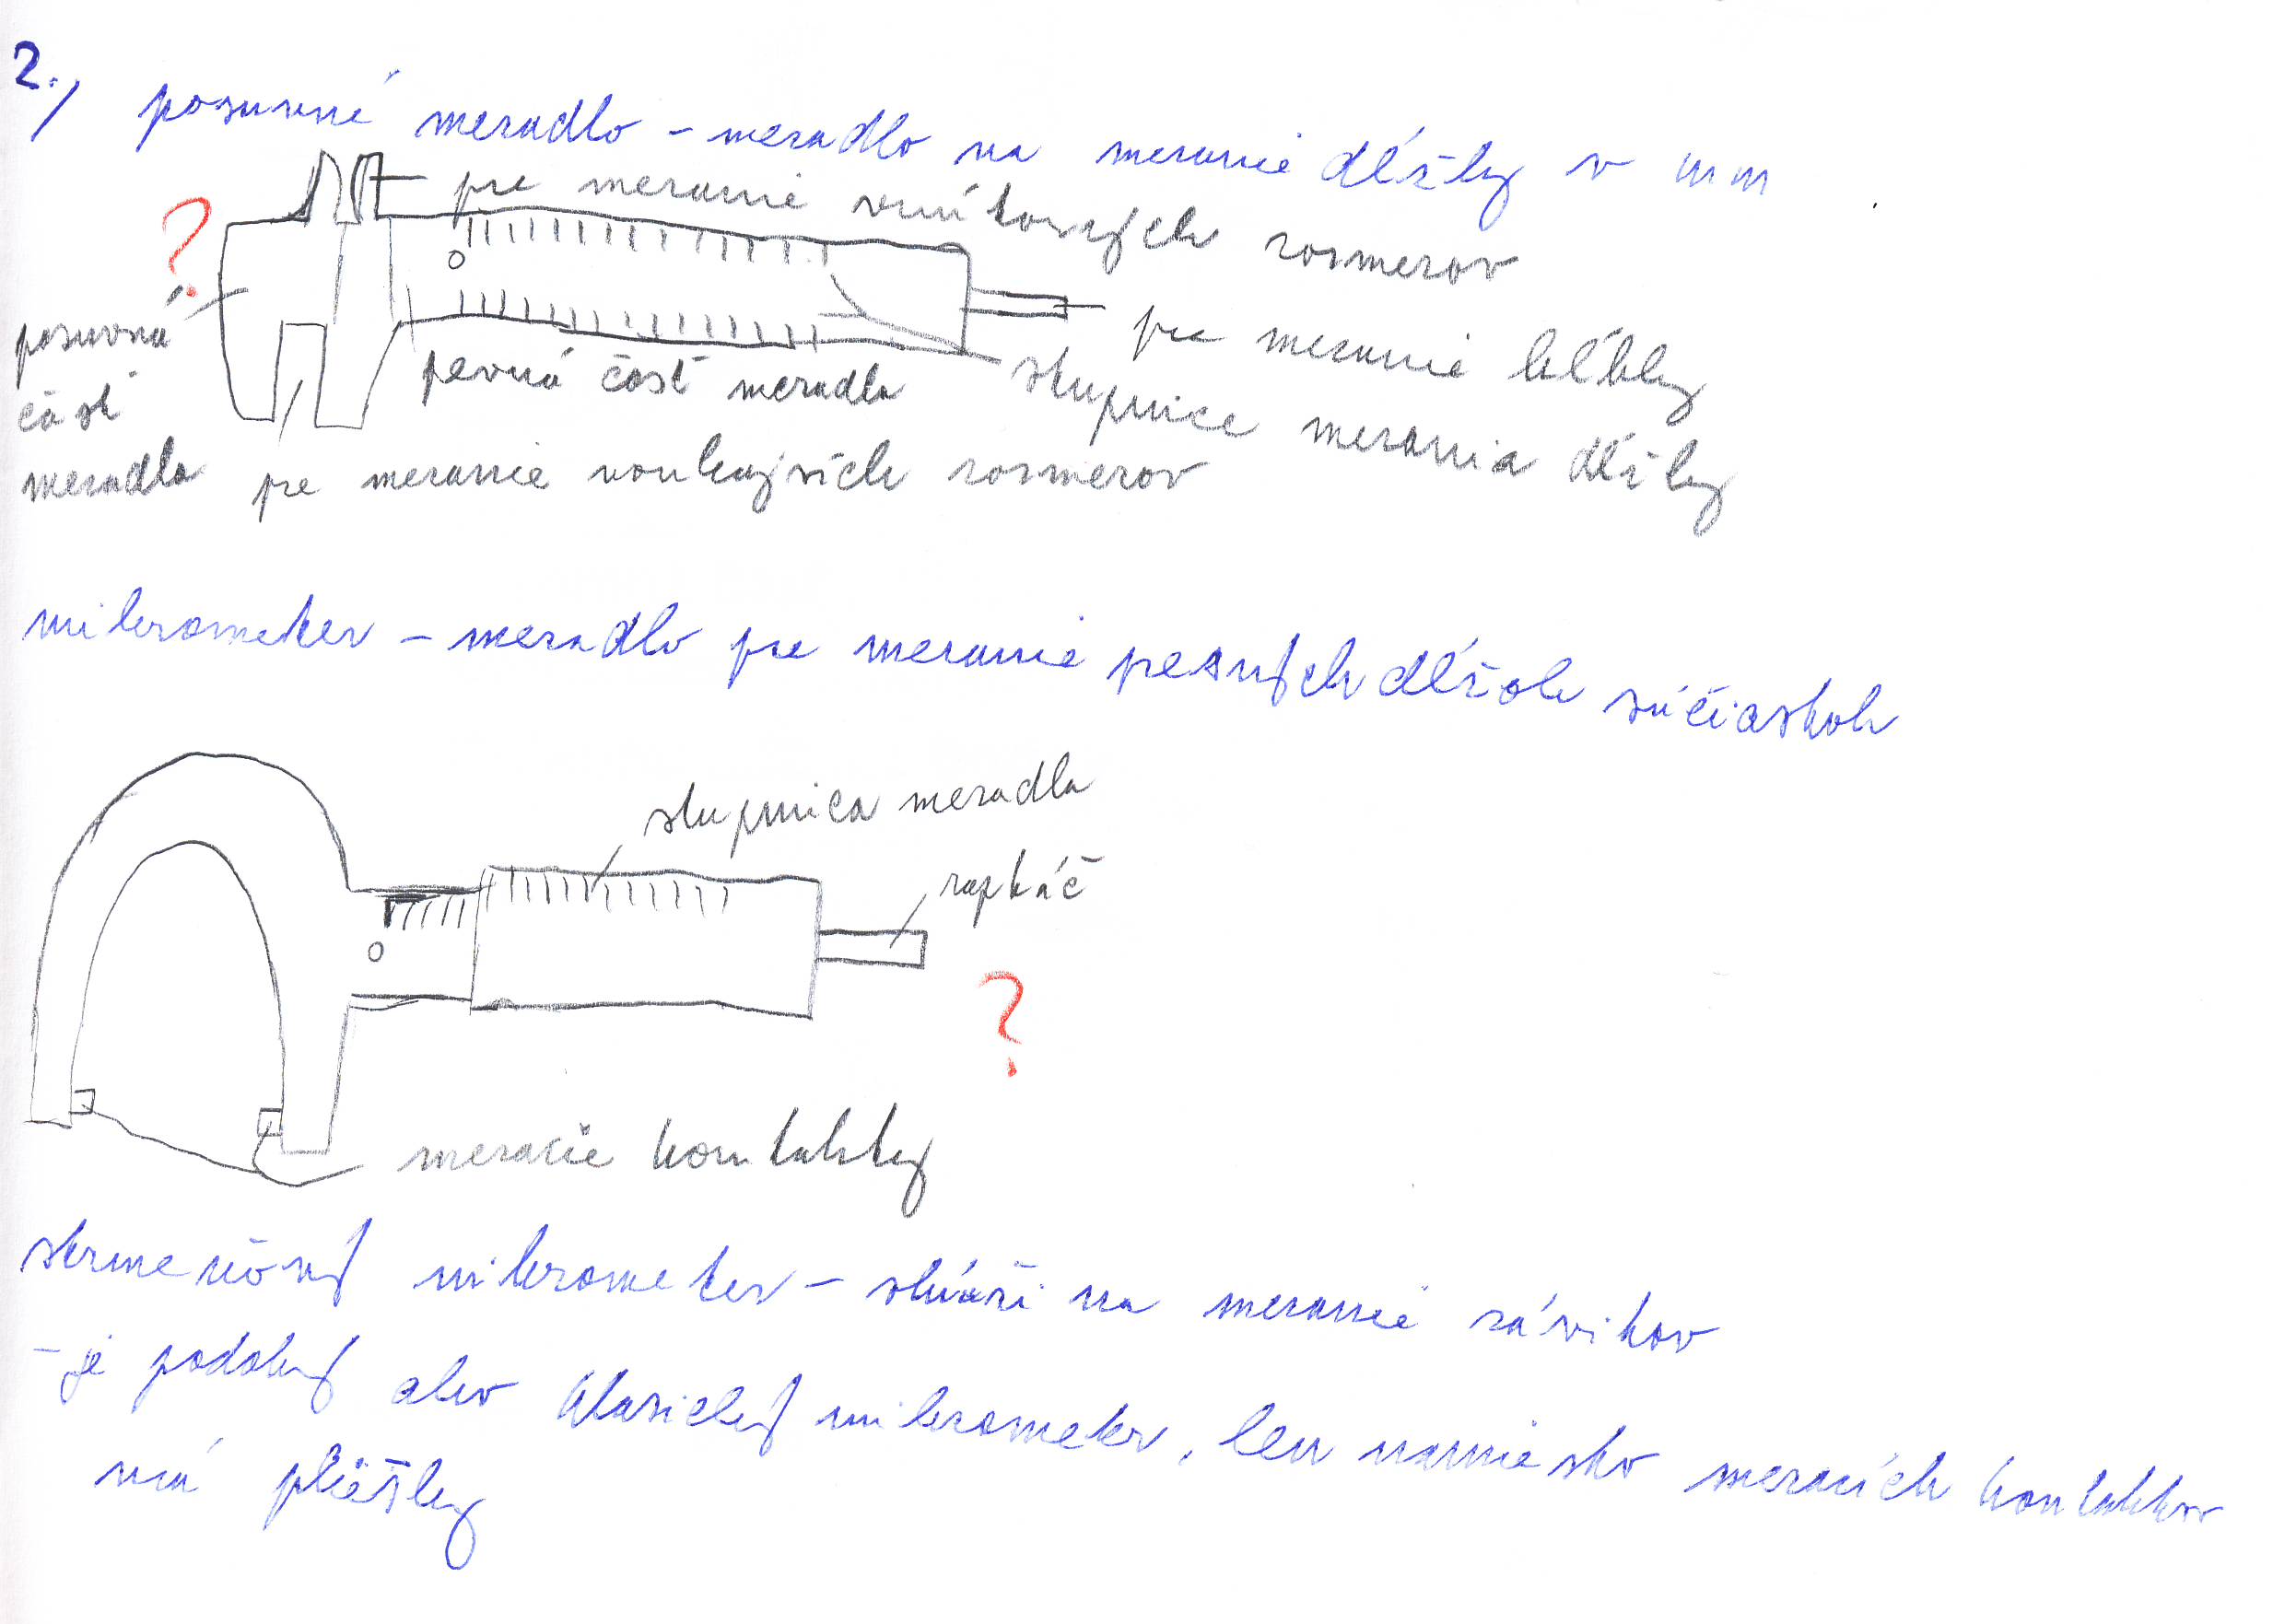 2.,
posuvné meradlo - meradlo na meranie dĺžky v mm
pre meranie vnútorných rozmerov
?
0
posuvná
časť
meradla
pevná časť meradla
pre meranie hĺbky
stupnice merania dĺžky
pre meranie vonkajších rozmerov
mikrometer - meradlo pre meranie presných dĺžok súčiastok
stupnica meradla
rapkáč
0
?
meracie kontakty
strmeňový mikrometer - slúži na meranie závitov
- je podobný ako klasický mikrometer, len namiesto meracích kontaktov
má pliešky